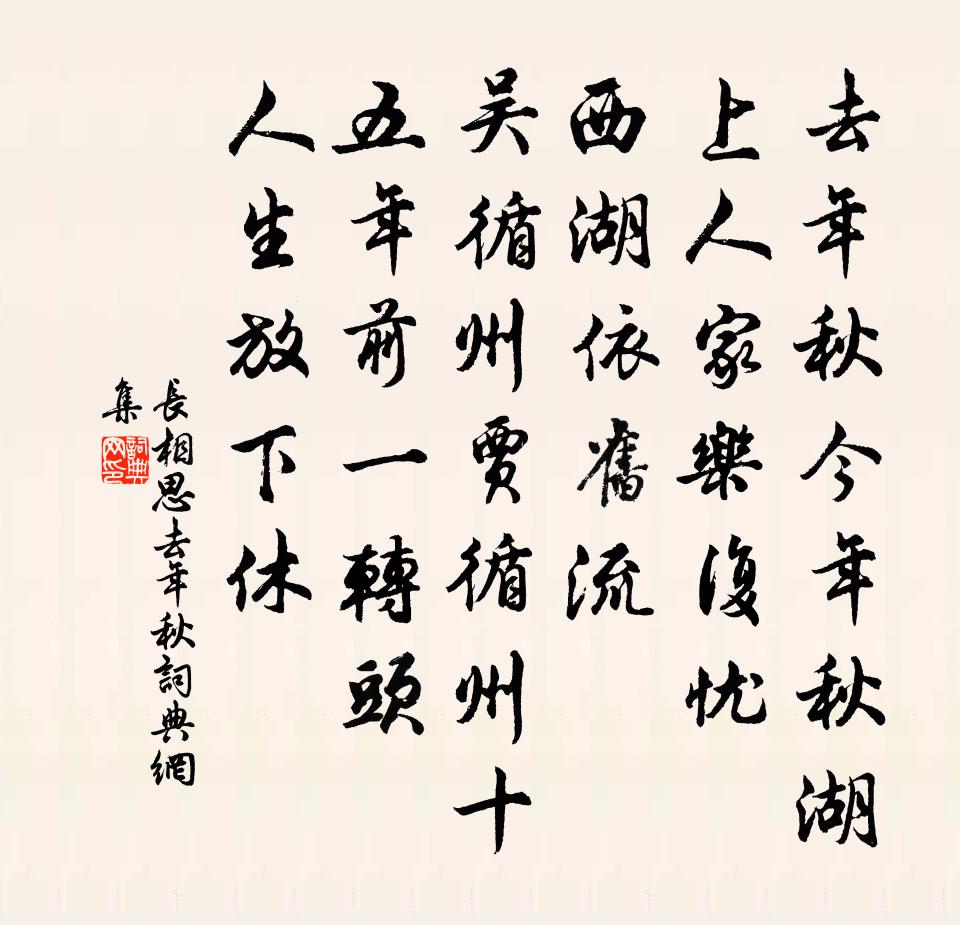 去年秋今年秋湖
上人家樂復忧
西湖依舊流
吴循州賈循州十
五年前一轉頭
人生放下休
長相思去年秋詞典網
集
詞典
网